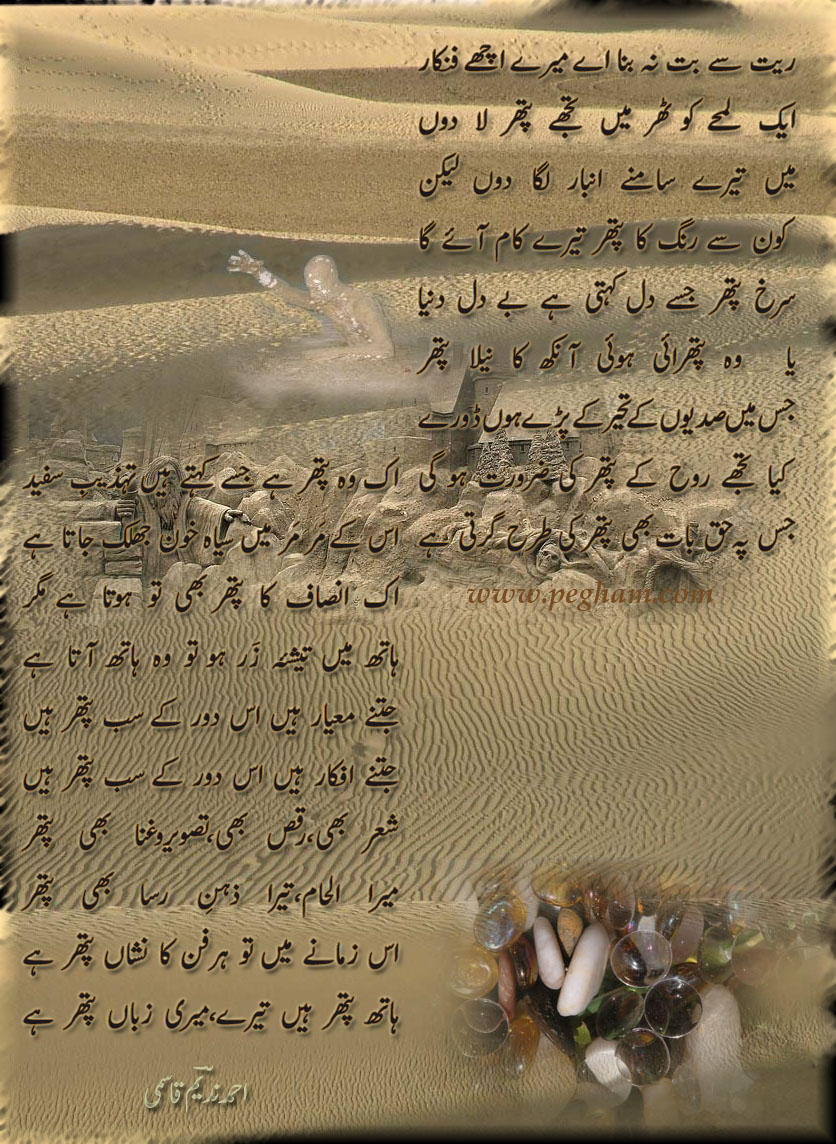 ریت سے بت نہ بنا اے میرے اچھے فنکار
ایک لمحے کو ٹھر میں تجھے پتھر لا دوں
میں تیرے سامنے انبار لگا دوں لیکن
کون سے رنگ کا پتھر تیرے کام آئے گا
سرخ پتھر جسے دل کہتی ہے بے دل دنیا
یا وہ پتھرائی ہوئی آنکھ کا نیلا پتھر
جس میں صدیوں کے تحیر کے پڑے ہوں ڈورے
کیا تجھے روح کے پتھر کی ضرورت ہو گی
جس پہ حق بات بھی پتھر کی طرح گرتی ہے
www.pegham.com
اک وہ پتھر ہے جسے کہتے ہیں تہذیبِ سفید
اس کے مَر مَر میں سیاہ خون جھلک جاتا ہے
اک انصاف کا پتھر بھی تو ہوتا ہے مگر
ہاتھ میں تیشۂ زَر ہو تو وہ ہاتھ آتا ہے
جتنے معیار ہیں اس دور کے سب پتھر ہیں
جتنے افکار ہیں اس دور کے سب پتھر ہیں
شعر بھی،رقص بھی،تصویروغنا بھی پتھر
میرا الحام،تیرا ذہنِ رسا بھی پتھر
اس زمانے میں تو ہر فن کا نشاں پتھر ہے
ہاتھ پتھر ہیں تیرے،میری زباں پتھر ہے
احمد ندیمؔ قاسمی